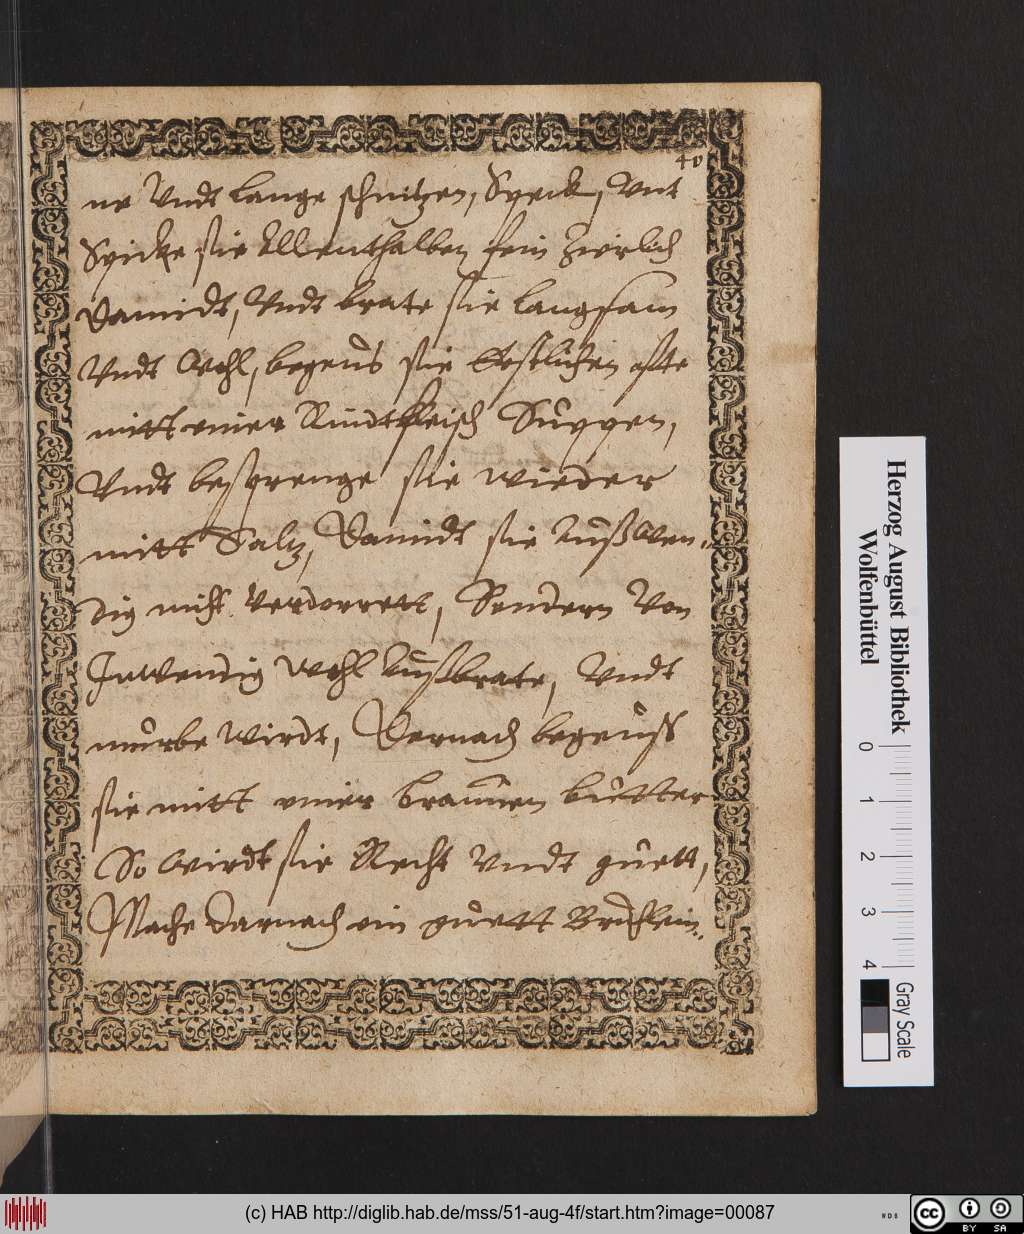 40
ne Vndt lange schnitzen, Speck, Vnt
Spicke sie Allenthalben fein Zierlich
Damidt, Vndt brate sie langsam
Vndt Wohl, begeus sie Ezlichen offte
mitt einer Rindtfleisch Suppen,
Vndt besprenge sie wieder
mitt Saltz, Damidt sie Außwen-
dig nicht verdorrett, Sondern Von
Inwendig wohl Außbrate, Vndt
murbe wirdt, Dernach begeuss
sie mitt einer braunen butter
So wirdt sie Recht Vndt guett,
Mache darnach ein guett Brühlein
Herzog August Bibliothek
Wolfenbüttel
0 1 2 3 4
Gray Scale
(c) HAB http://diglib.hab.de/mss/51-aug-4f/start.htm?image=00087
WDB
cc BY SA